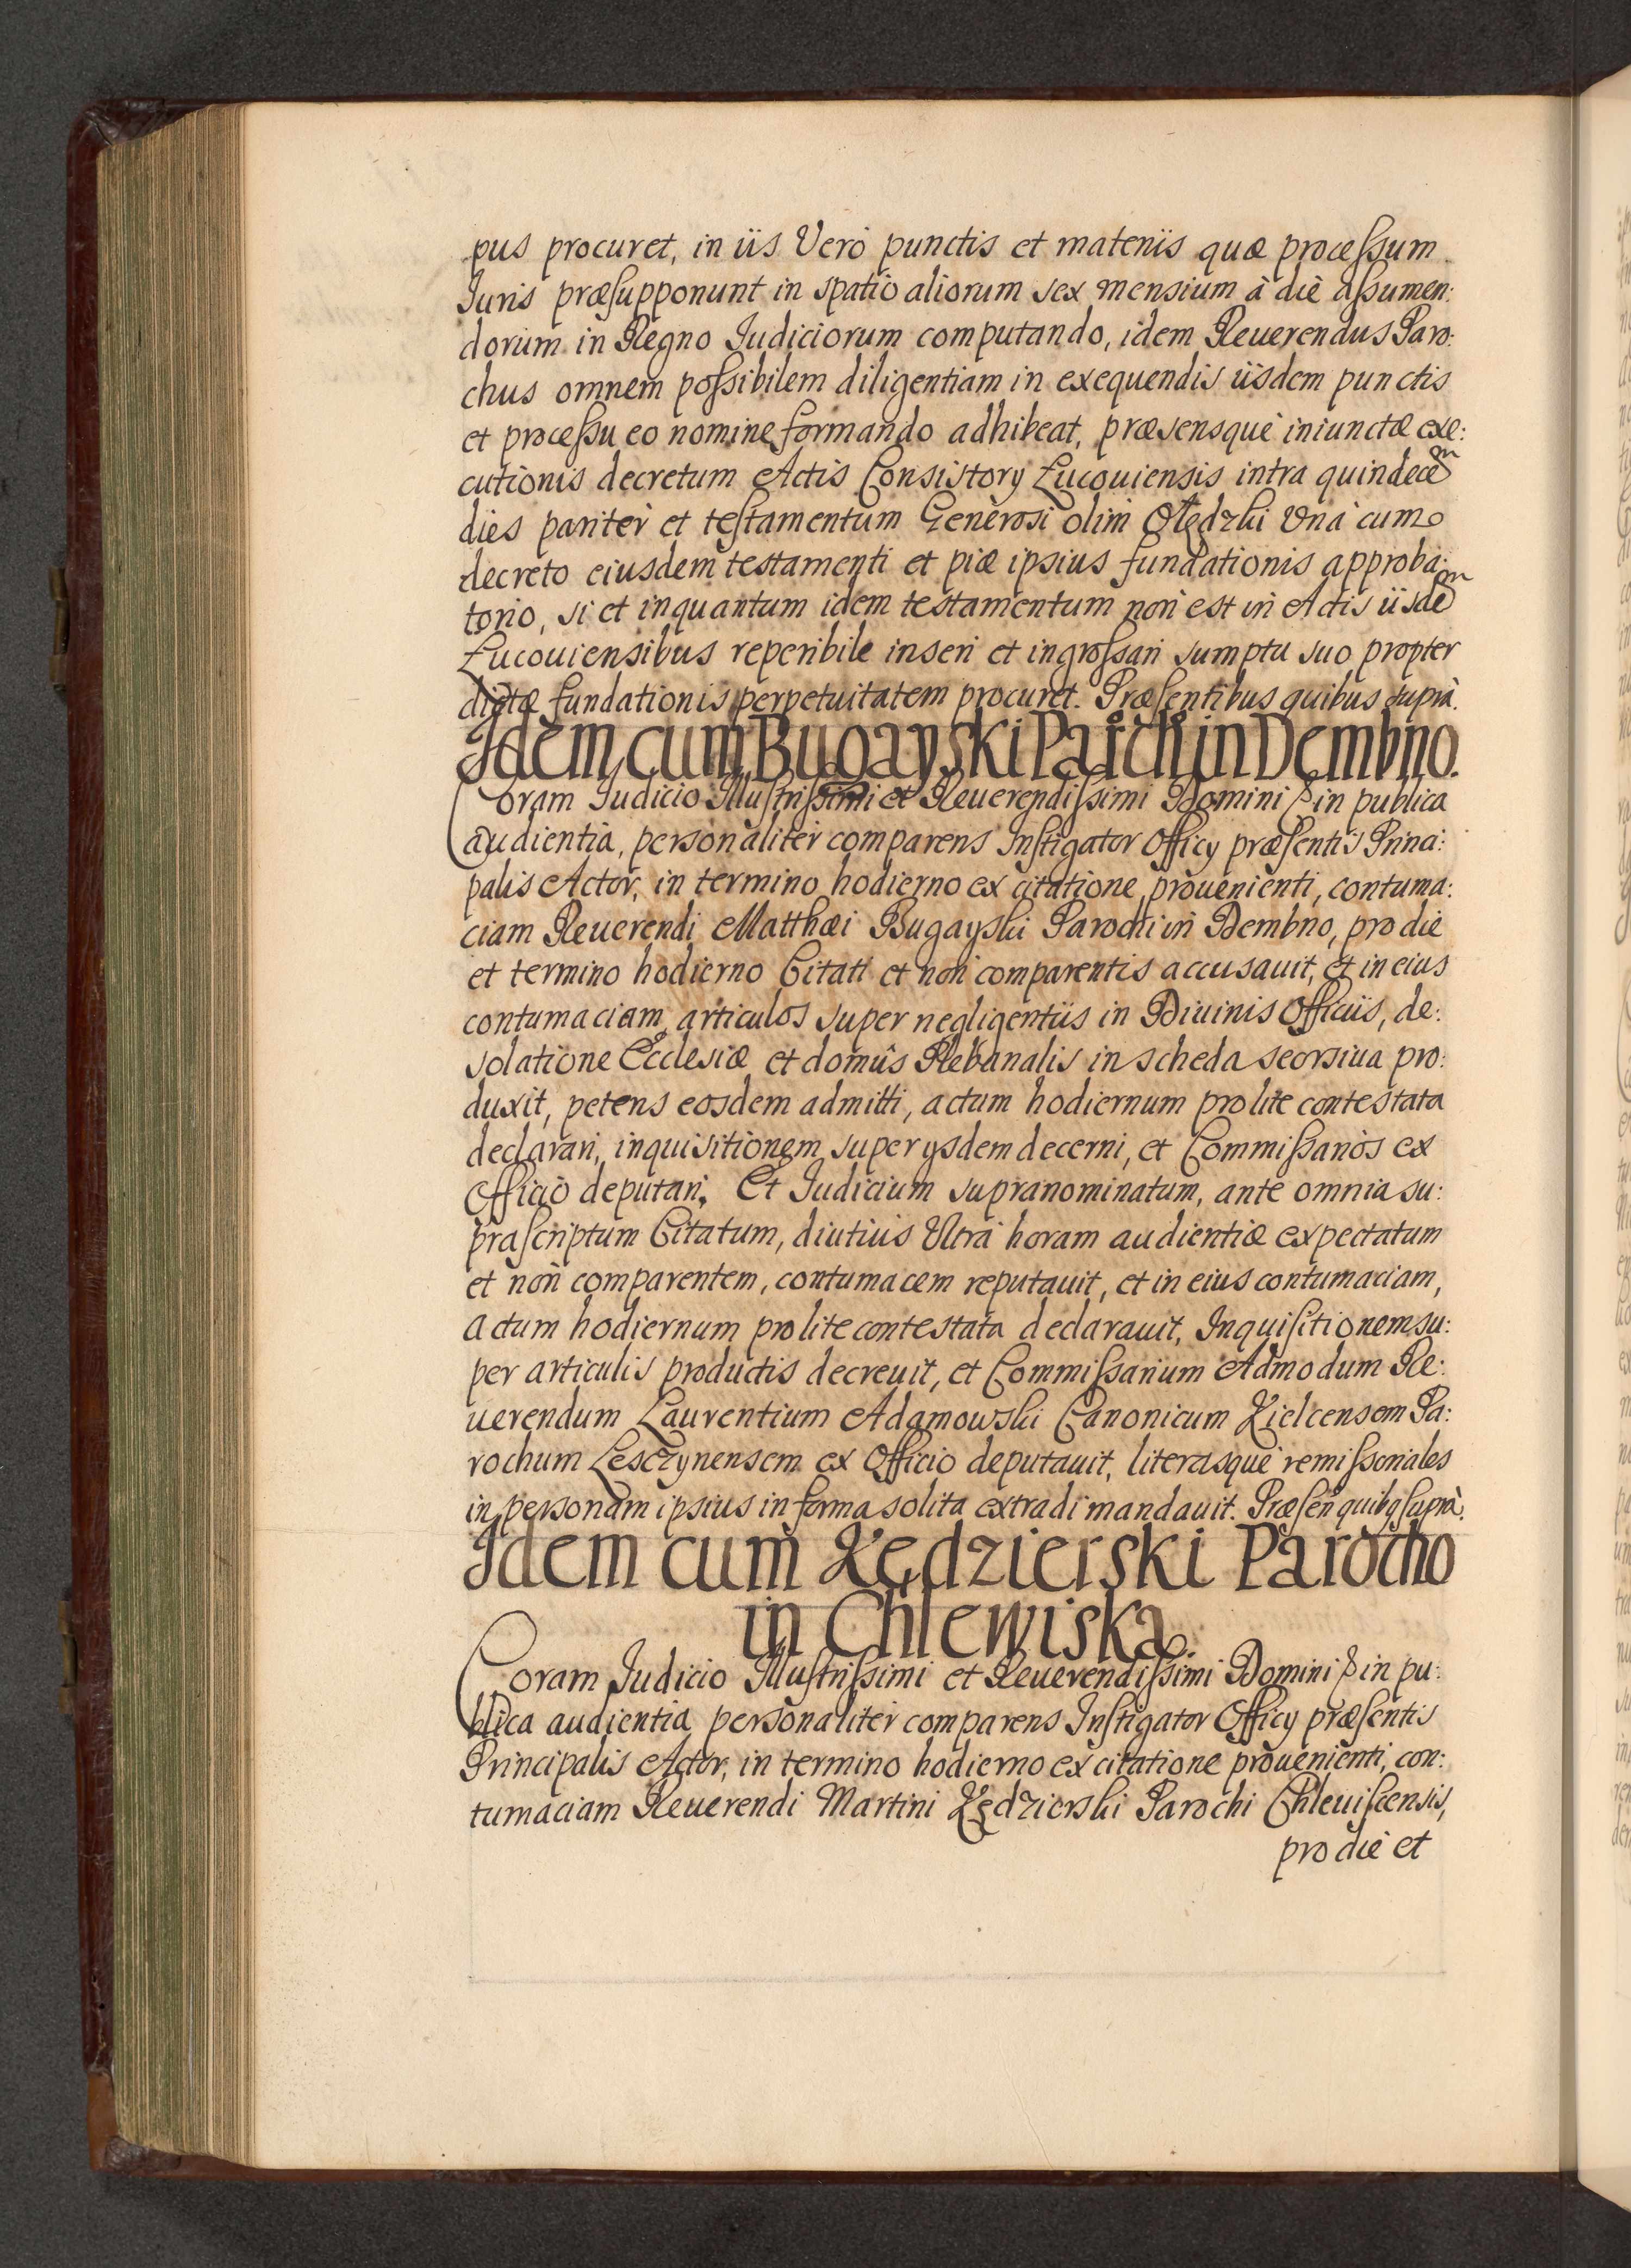 pus procuret, in iis Verò punctis et materiis quæ processum
Iuris præsupponunt in spatio aliorum sex mensium à die assumen:
dorum in Regno Iudiciorum computando, idem Reuerendus Paro:
chus omnem possibilem diligentiam in exequendis iisdem punctis
et processu eo nomine formando adhibeat, præsensquè iniunctæ exe:
cutionis decretum Actis Consistory Lucouiensis intra quindecem
dies pariter et testamentum Generosi olim Olędzki Vnà cum
decreto eiusdem testamenti et piæ ipsius fundationis approba:
torio, si et inquantum idem testamentum non est in Actis iisdem
Lucouiensibus reperibile inseri et ingrossari sumptu suo propter
dictæ fundationis perpetuitatem procuret. Præsentibus quibus suprà.
Idem cum Bugayski Paroch in Dembno.
Coram Iudicio Illustrissimi et Reuerendissimi Domini & in publica
audientia, personaliter comparens Instigator Officy præsentis Princi:
palis Actor, in termino hodierno ex citatione prouenienti, contuma:
ciam Reuerendi Matthæi Bugayski Parochi in Dembno, pro die
et termino hodierno Citati et non comparentis accusauit, et in eius
contumaciam articulos super negligentiis in Diuinis Officiis, de:
solatione Ecclesiæ et domûs Plebanalis in scheda seorsiua pro:
duxit, petens eosdem admitti, actum hodiernum pro lite contestata
declarari, inquisitionem super ysdem decerni, et Commissarios ex
Officio deputari. Et Iudicium supranominatum, ante omnia su:
prascriptum Citatum, diutius Vltra horam audientiæ expectatum
et non comparentem, contumacem reputauit, et in eius contumaciam,
actum hodiernum pro lite contestata declarauit, Inquisitionem su:
per articulis productis decreuit, et Commissarium Admodum Re:
uerendum Laurentium Adamowski Canonicum Kielcensem Pa:
rochum Lesczynensem ex Officio deputauit, literasquè remissoriales
in personam ipsius in forma solita extradi mandauit. Præsen quibq suprà.
Idem cum Kędzierski Parocho
in Chlewiska.
Coram Iudicio Illustrissimi et Reuerendissimi Domini & in pu:
blica audientia personaliter comparens Instigator Officy præsentis
Principalis Actor, in termino hodierno ex citatione prouenienti, con:
tumaciam Reuerendi Martini Kędzierski Parochi Chleuiscensis,
pro die et